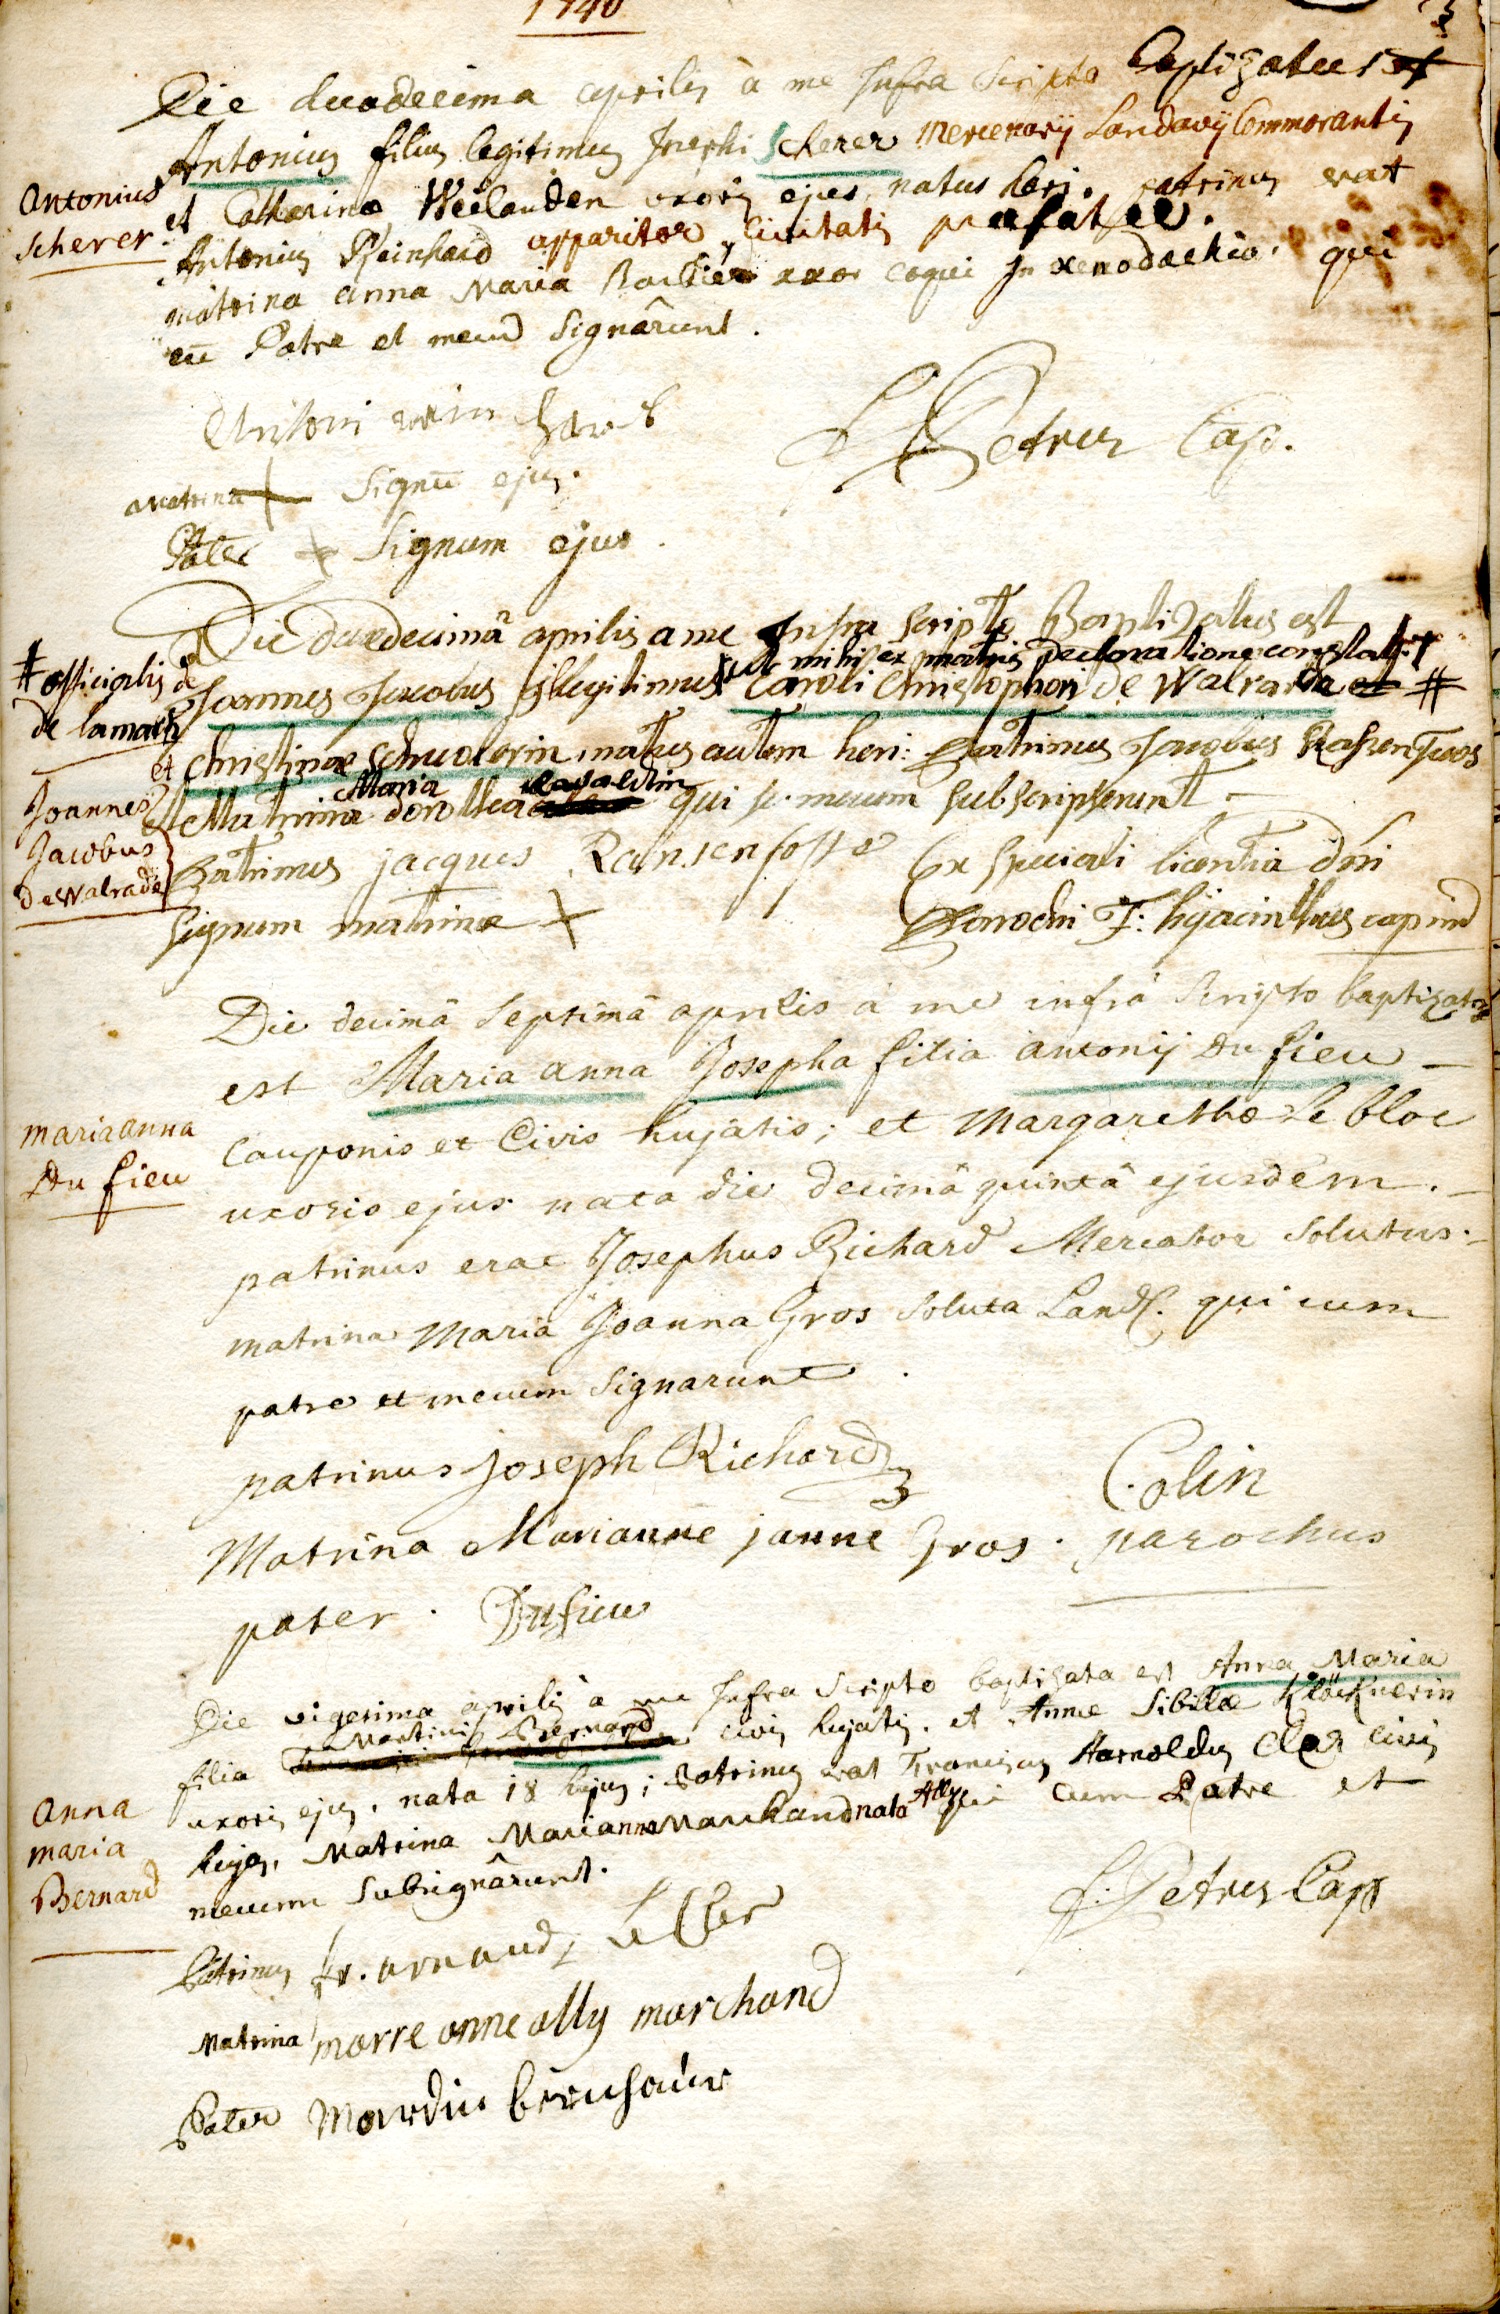 1740
Die duodecima aprilis à me Infra Scripto Baptizatus est
Antonius filius legitimus Josephi Scherer Mercenarij Landavij Commorantis
Antonius
Scherer
et Catharinæ Weilanden uxoris ejus natus heri. patrinus erat
Antonius Reinhard apparitor Civitatis præfatæ.
matrina anna Maria uxor coqui In xenodochio. qui
cū Patre et mecū Signârunt.
Antoni
F Petrus Cap.
Matrina + Signū ejus.
Pater + Signum ejus.
Die duodecimâ aprilis a me Infra scripto Baptizatus est
ut mihi ex matris declaratione constat.
Joannes Jacobus Illegitimus Caroli Christophori de Walrade et #
# officialis de
de lamarck
et
Joannes
Jacobus
de Walrade
Christinæ natus autem heri: Patrinus Jacobus
Matrina Maria dorothea qui se mecum subscripserunt
Patrinus jacques Ransenfosse
Signum matrinæ +
Ex speciali licentia dni
Parochi F: hyacinthus cap ind
Die decimâ Septimâ aprilis à me infrà Scripto baptizata
est Maria anna Josepha filia antonij du fieu
mariaanna
Du fieu
Cauponis et Civis hujatis; et Margarethæ le bloc
uxoris ejus nata die decimâ quintâ ejusdem.
patrinus erat Josephus Richard Mercator Solutus.
matrina Maria Joanna Gros Soluta Land. qui cum
patre et mecum Signarunt.
patrinus joseph Richard
Matrina Marianne janne Gros.
pater. Dufieu
Colin
parochus
Die vigesima aprilis à me Infra Scripto baptizata est Anna Maria
filia Martini Bernard civis hujatis. et Annæ Sibillæ Klöcknerin
uxoris ejus, nata 18 hujus; Patrinus erat Franciscus Harnoldus Cler civis
Anna
maria
Bernard
hujas, Matrina Marianna Marchand nata Ally qui cum Patre et
mecum Subsignârunt.
F. Petrus Capp
Patrinus fr. arnaud
Matrina marre anne ally marchand
Pater Mardin